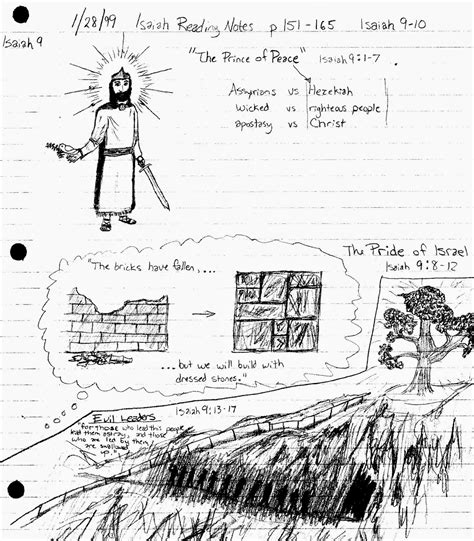 1/28/99 Isaiah Reading Notes p 151-165 Isaiah 9-10
Isaiah 9
"The Prince of Peace" Isaiah 9:1-7
Assyrians vs Hezekiah
Wicked vs righteous people
apostasy vs Christ
The Pride of Israel
Isaiah 9:8-12
"The bricks have fallen,...
...but we will build with
dressed stones."
Isaiah 9:13-17
Evil Leaders
"for those who lead this people
lead them astray, and those
who are led by them
are swallowed
up."